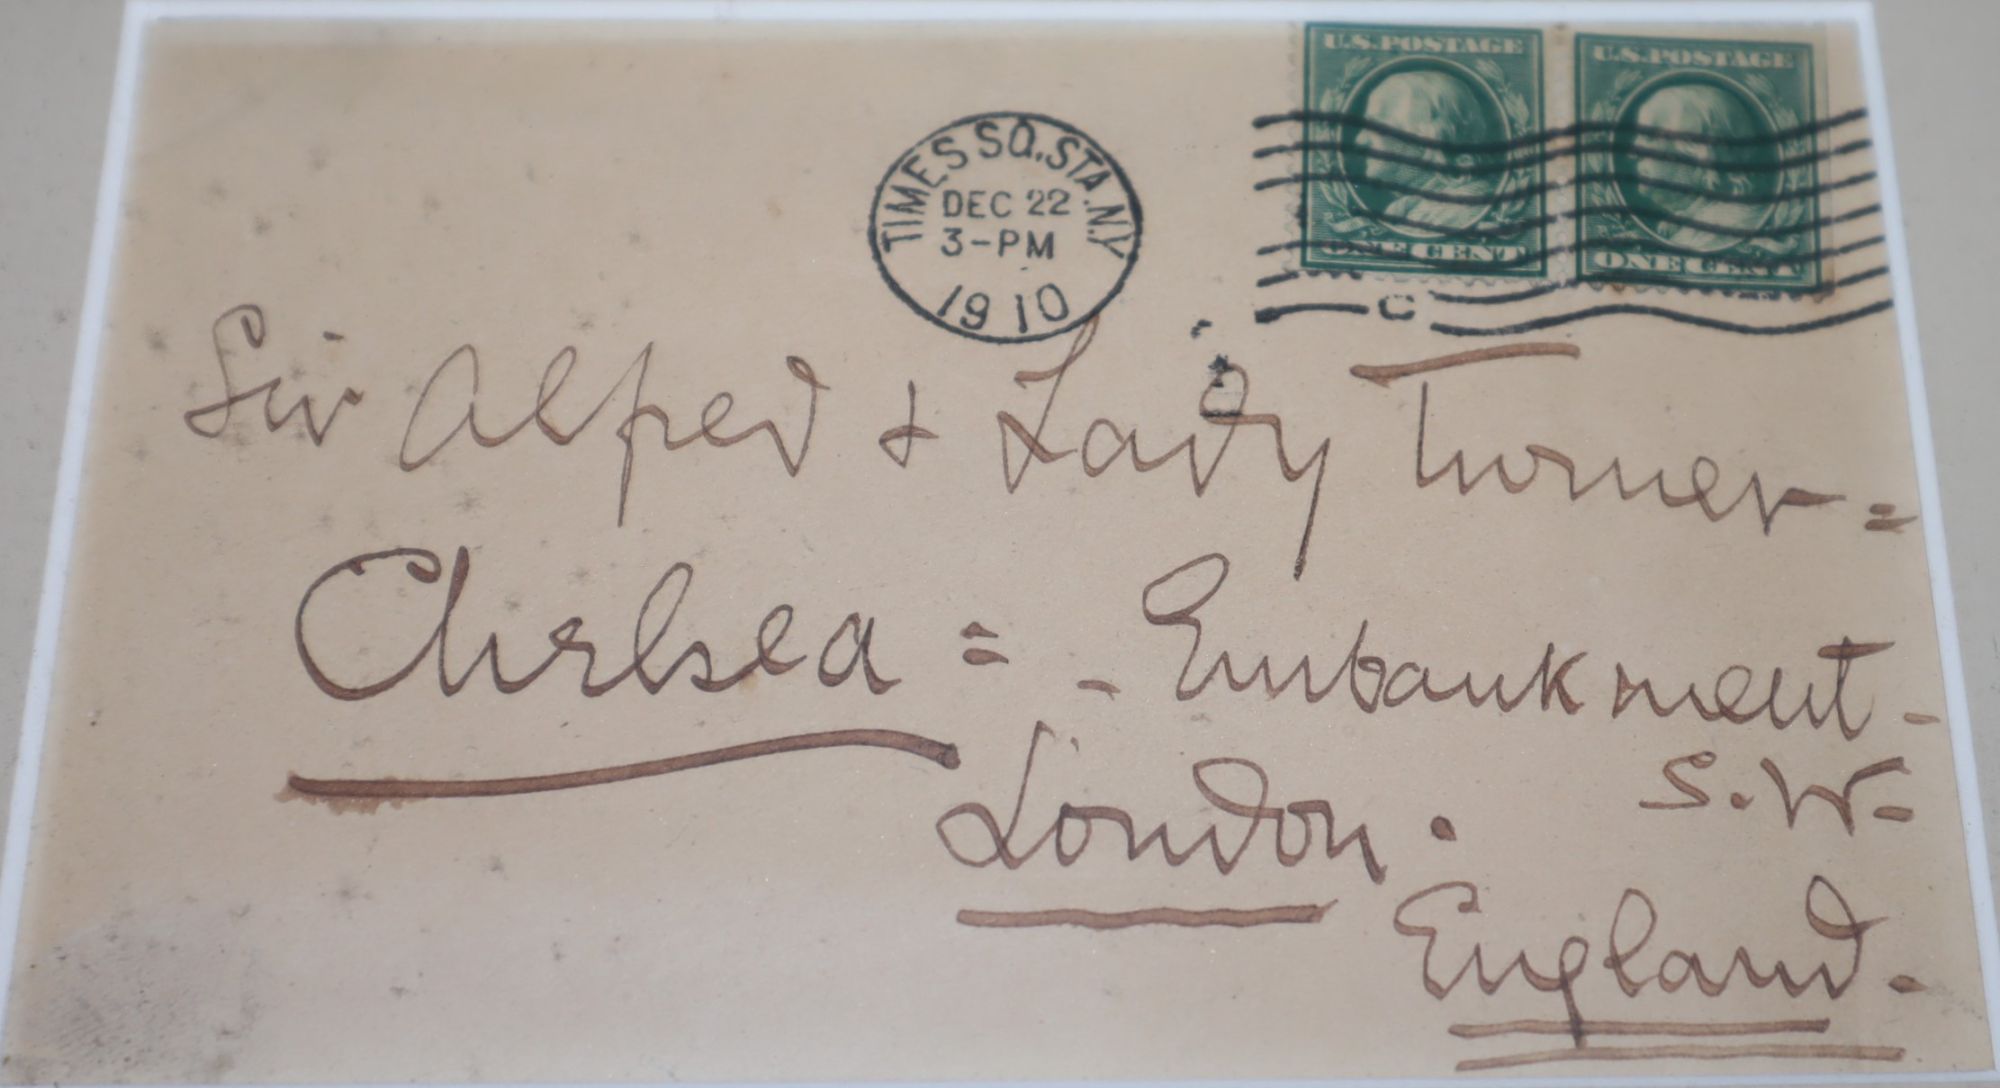 U.S. POSTAGE U.S. POSTAGE
TIMES SQ. STA. N.Y.
DEC 22
3-PM
1910
ONE CENT ONE CENT
C
Sir Alfred & Lady Turner =
Chelsea = - Embankment -
S.W. =
London.
England.